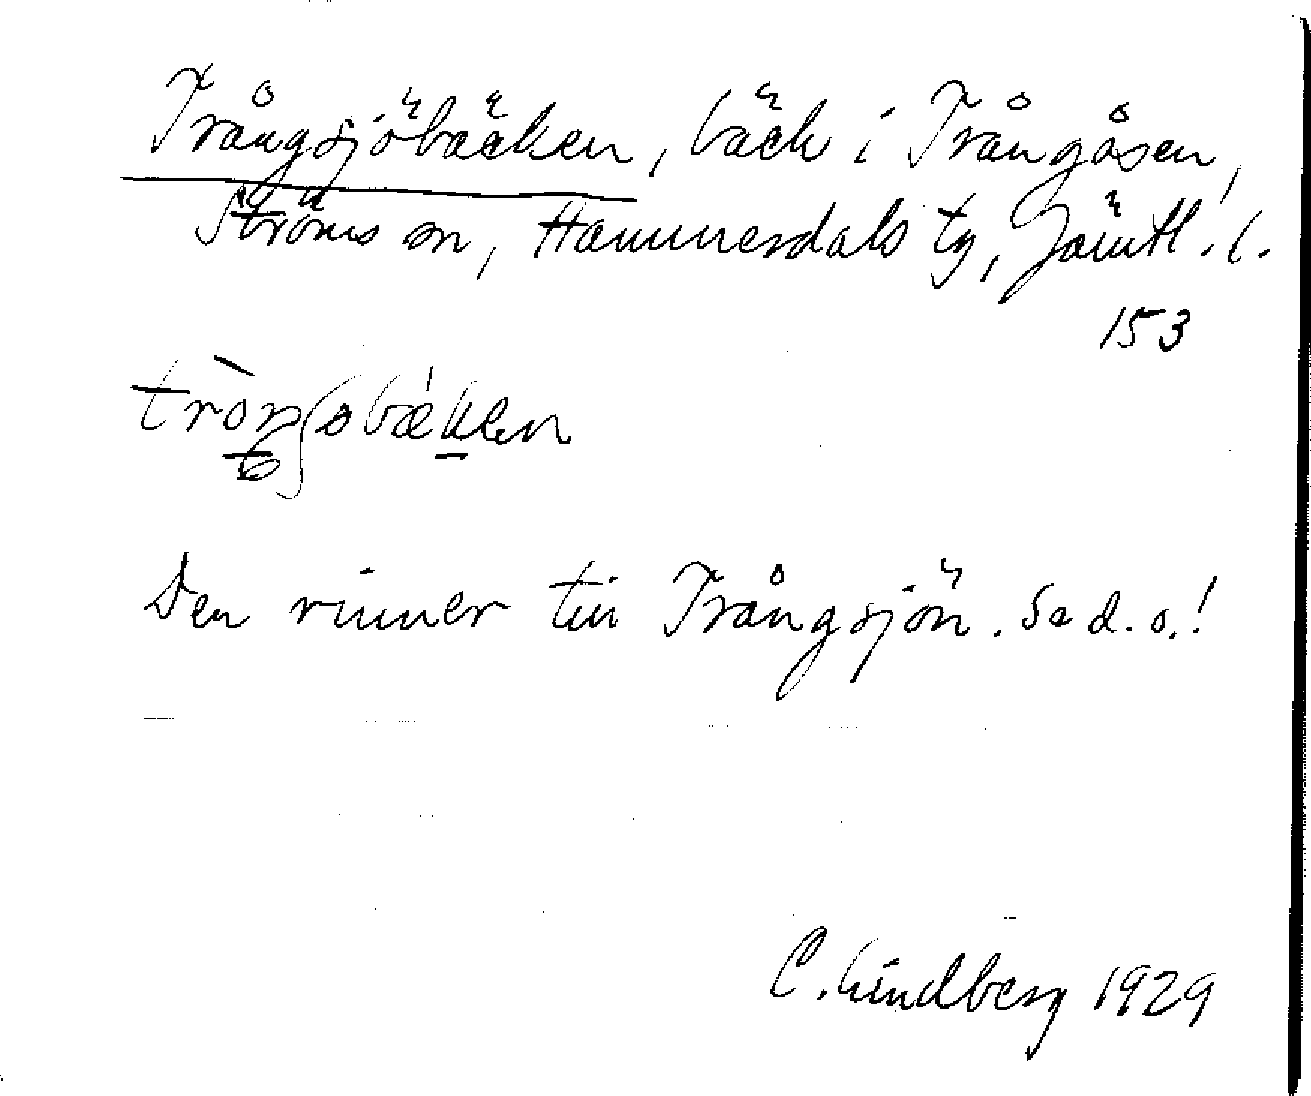 Trångsjöbäcken, bäck i Trångåsen,
Ströms sn, Hammerdals tg, Jämtl. l.
153
Den rinner till Trångsjön. Se d. o.!
C. Lindberg 1929